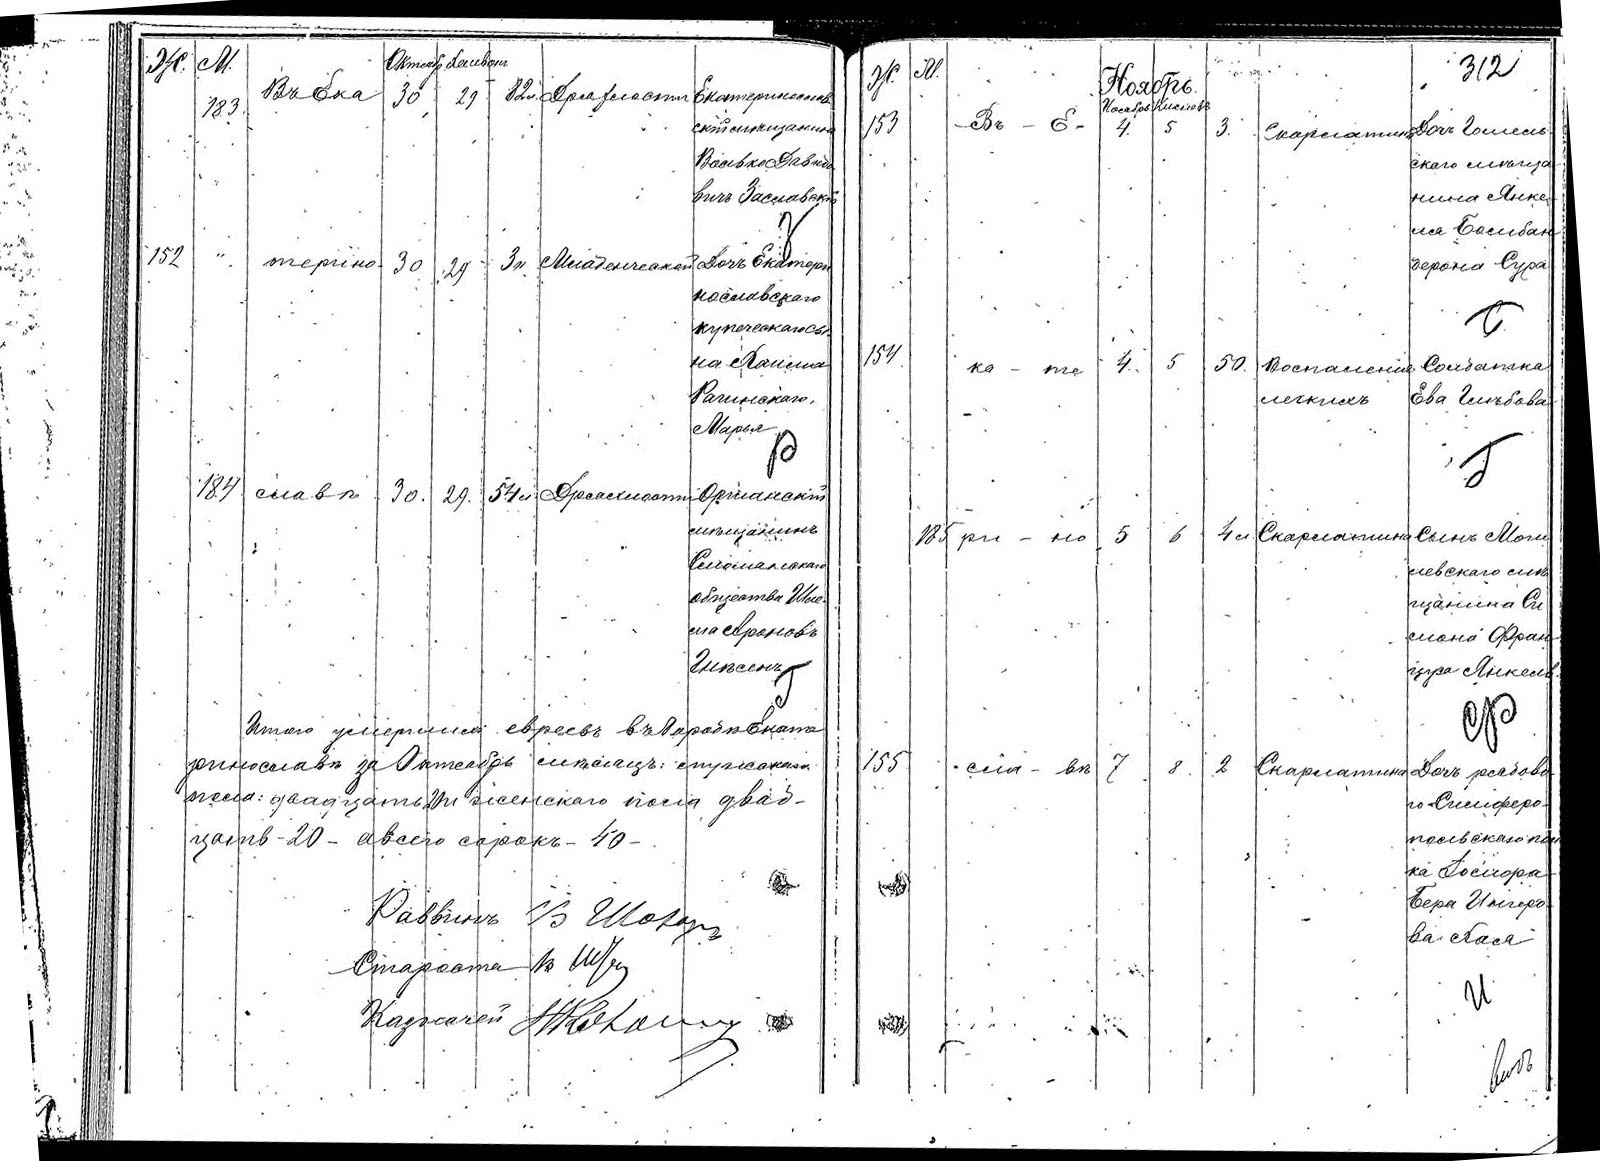 Ж. М.
Октябр. Хешвонъ
183. Въ Ека 30 29 82 л. Дряхлости Екатеринослав
скій мѣщанинъ
Волько Давидо
вичъ Заславскій
З
152 " терино 30 29 3 л. Младенческой Дочь Екатери
нославскаго
купеческаго сы
на Хаима
Рагинскаго,
Марья
Р
184 славѣ 30. 29. 54 л. Дряхлости Оршанскій
мѣщанинъ
общества
Ароновъ
Итого умершихъ евреевъ въ Городѣ Екате
ринославѣ за Октябрь мѣсяцъ: мужскаго
пола: двадцать и женскаго пола двад-
цать - 20 - а всего сорокъ - 40 -
Раввинъ
Староста
Казначей
312
Ж. М.
Ноябрь.
Ноябрь Кислевъ
153 Въ - Е - 4. 5 3. Скарлатина Дочь Гомель
скаго мѣща
нина Янке
ля
Сура
154. ка - те 4. 5 50. Воспаленія Солдатка
легкихъ Ева Глѣбова
Г
185 ри - но 5 6 4 л Скарлатина Сынъ Моги
левскаго мѣ
щанина Си
мона Фран
цуза Янкель.
Ф
155 сла - вѣ 7 8. 2 Скарлатина Дочь рядово
го Симферо
польскаго пол
ка
Бера
ва Хася
И